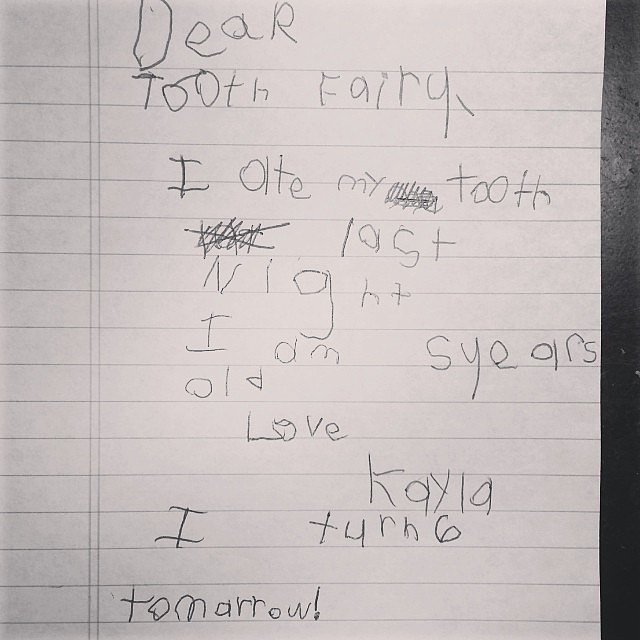 Dear
Tooth Fairy,
I Ate my tooth
last
Night
I am 5years
old
Love
Kayla
I turn 6
tomarrow!